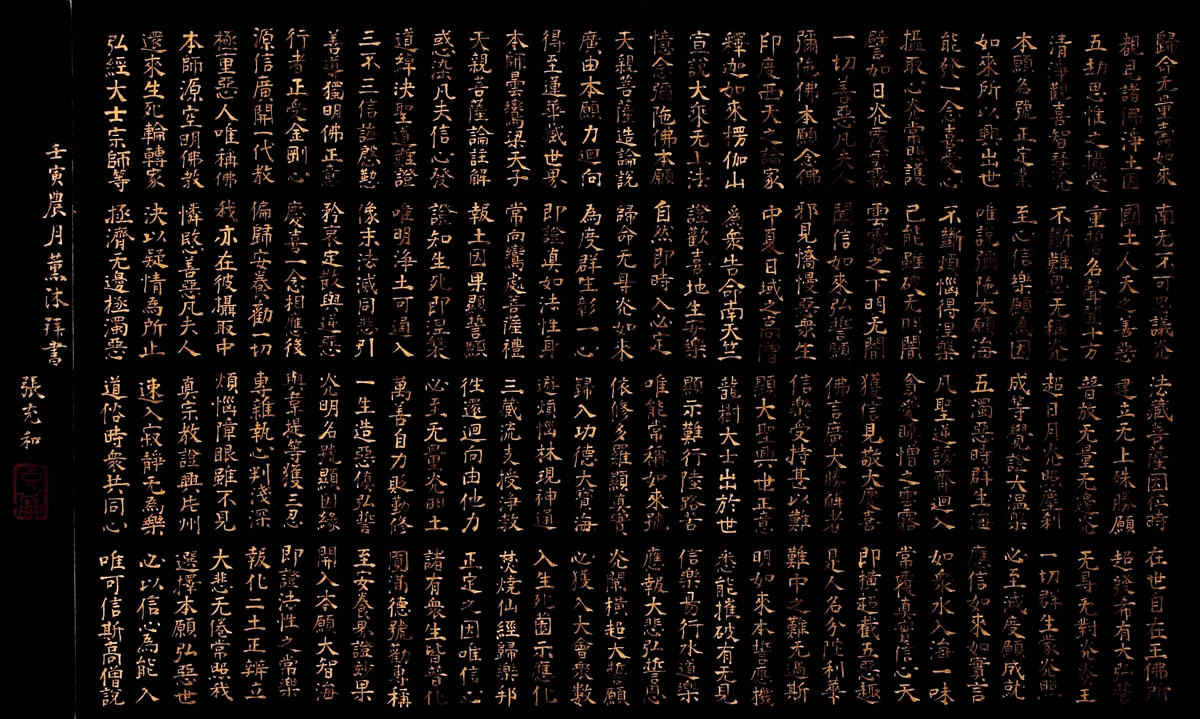 歸命无量壽如來 南无不可思議光 法藏菩薩因位時 在世自在王佛所
覩見諸佛淨土因 國土人天之善惡 建立无上殊勝願 超發希有大弘誓
五劫思惟之攝受 重誓名聲聞十方 普放无量无邊光 无㝵无對光炎王
清淨歡喜智慧光 不斷難思无稱光 超日月光照塵刹 一切群生蒙光照
本願名號正定業 至心信樂願為因 成等覺證大涅槃 必至滅度願成就
如來所以興出世 唯說彌陁本願海 五濁惡時群生海 應信如來如實言
能發一念喜愛心 不斷煩惱得涅槃 凡聖逆謗齊迴入 如衆水入海一味
攝取心光常照護 已能雖破无明闇 貪愛瞋憎之雲霧 常覆真實信心天
譬如日光覆雲霧 雲霧之下明无闇 獲信見敬大慶喜 即橫超截五惡趣
一切善惡凡夫人 聞信如來弘誓願 佛言廣大勝解者 是人名分陀利華
彌陁佛本願念佛 邪見憍慢惡衆生 信樂受持甚以難 難中之難无過斯
印度西天之論家 中夏日域之高僧 顯大聖興世正意 明如來本誓應機
釋迦如來楞伽山 為衆告命南天竺 龍樹大士出於世 悉能摧破有无見
宣說大乘无上法 證歡喜地生安樂 顯示難行陸路苦 信樂易行水道樂
憶念彌陁佛本願 自然即時入必定 唯能常稱如來號 應報大悲弘誓恩
天親菩薩造論說 歸命无㝵光如來 依修多羅顯真實 光闡橫超大誓願
廣由本願力迴向 為度群生彰一心 歸入功德大寶海 必獲入大會衆數
得至蓮華藏世界 即證真如法性身 遊煩惱林現神通 入生死園示應化
本師曇鸞梁天子 常向鸞處菩薩禮 三藏流支授淨教 焚燒仙經歸樂邦
天親菩薩論註解 報土因果顯誓願 往還迴向由他力 正定之因唯信心
惑染凡夫信心發 證知生死即涅槃 必至无量光明土 諸有衆生皆普化
道綽決聖道難證 唯明淨土可通入 萬善自力貶勤修 圓滿德號勸專稱
三不三信誨慇懃 像末法滅同悲引 一生造惡值弘誓 至安養界證妙果
善導獨明佛正意 矜哀定散與逆惡 光明名號顯因緣 開入本願大智海
行者正受金剛心 慶喜一念相應後 與韋提等獲三忍 即證法性之常樂
源信廣開一代教 偏歸安養勸一切 專雜執心判淺深 報化二土正辨立
極重惡人唯稱佛 我亦在彼攝取中 煩惱障眼雖不見 大悲无倦常照我
本師源空明佛教 憐愍善惡凡夫人 真宗教證興片州 選擇本願弘惡世
還來生死輪轉家 決以疑情為所止 速入寂靜无為樂 必以信心為能入
弘經大士宗師等 拯濟无邊極濁惡 道俗時衆共同心 唯可信斯高僧說
壬寅農月薰沐拜書
張充和